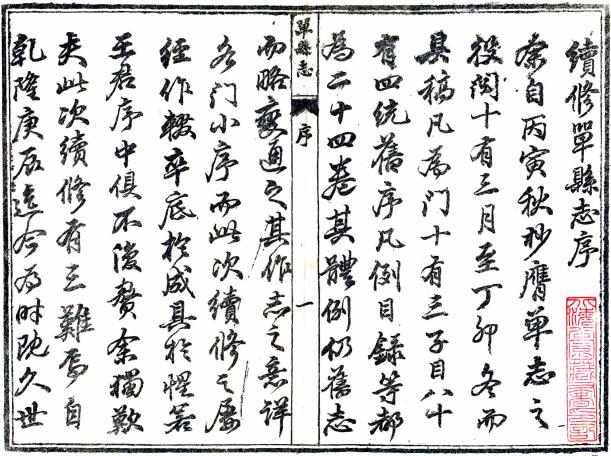 續修單縣志序
余自丙寅秋杪膺單志之
役閱十有三月至丁卯冬而
具稿凡為門十有三子目八十
有四統舊序凡例目錄等都
為二十四卷其體例仍舊志
單縣志
序
一
而略變通之其作志之意詳
各門小序而此次續修之屢
經作輟卒底於成具於惺若
王君序中俱不復贅余獨歎
夫此次續修有三難焉自
乾隆庚辰迄今為時既久世